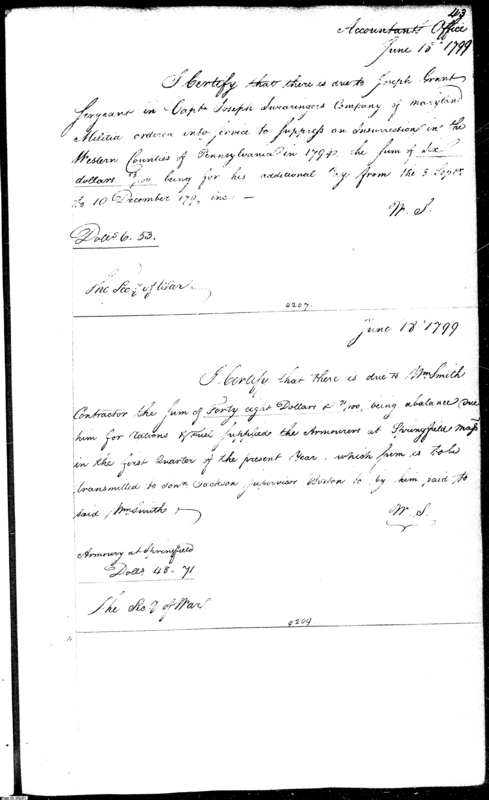 43
Accountants Office
June 18th 1799
I Certify that there is due to Joseph Grant
Sergeant in Capt. Joseph Swearingers Company of Maryland
Militia ordered into service to suppress an Insurrection in the
Western Counties of Pennsylvania in 1794, the sum of Six
dollars being for his additional Pay from the 5 Septr.
to 10 December 179 inc:
W. S.
Dolls 6. 53.
The Secy. of War
4207.
June 18th 1799
I Certify that there is due to Wm Smith
Contractor the sum of Forty eight Dollars & 71/100, being a balance due
him for rations & Fuel supplied the Armourers at Springfield Mass
in the first Quarter of the present Year, which sum is to be
transmitted to Jonn. Jackson Supervisor Boston to by him paid to
said Wm Smith
W. S.
Armoury at Springfield
Dolls. 48. 71
The Secy of War
4209